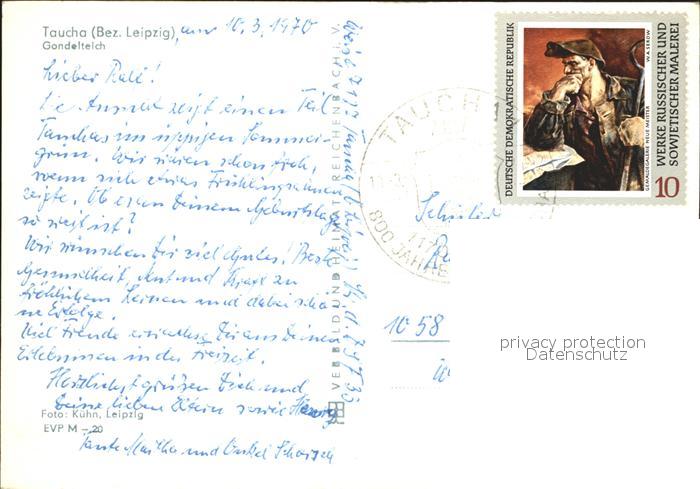 Taucha (Bez. Leipzig), am 10.3.1970
Gondelteich
Lieber Ralf!
Die Ansicht zeigt einen Teil
Tauchas im üppigen Sommer-
grün. Wir wären schon froh,
wenn sich etwas Frühlingsahnen
zeigte. Ob es an Deinem Geburtstag
so weit ist?
Wir wünschen Dir viel Gutes! Beste
Gesundheit, Mut und Kraft zu
fröhlichem Lernen und dabei schö-
ne Erfolge.
Viel Freude erwachse Dir aus Deinen
Erlebnissen in der Freizeit.
Herzlichst grüßen Dich und
Deine lieben Eltern sowie
Foto: Kühn, Leipzig
EVP M – 20
Tante Martha und Onkel
VERB BILD UND HEIMAT REICHENBACH I. V.
TAUCH
800 JAHRE
DEUTSCHE DEMOKRATISCHE REPUBLIK
W.A. SEROW
GEMÄLDEGALERIE NEUE MEISTER
WERKE RUSSISCHER UND
SOWJETISCHER MALEREI
10
Schüler
1058
privacy protection
Datenschutz